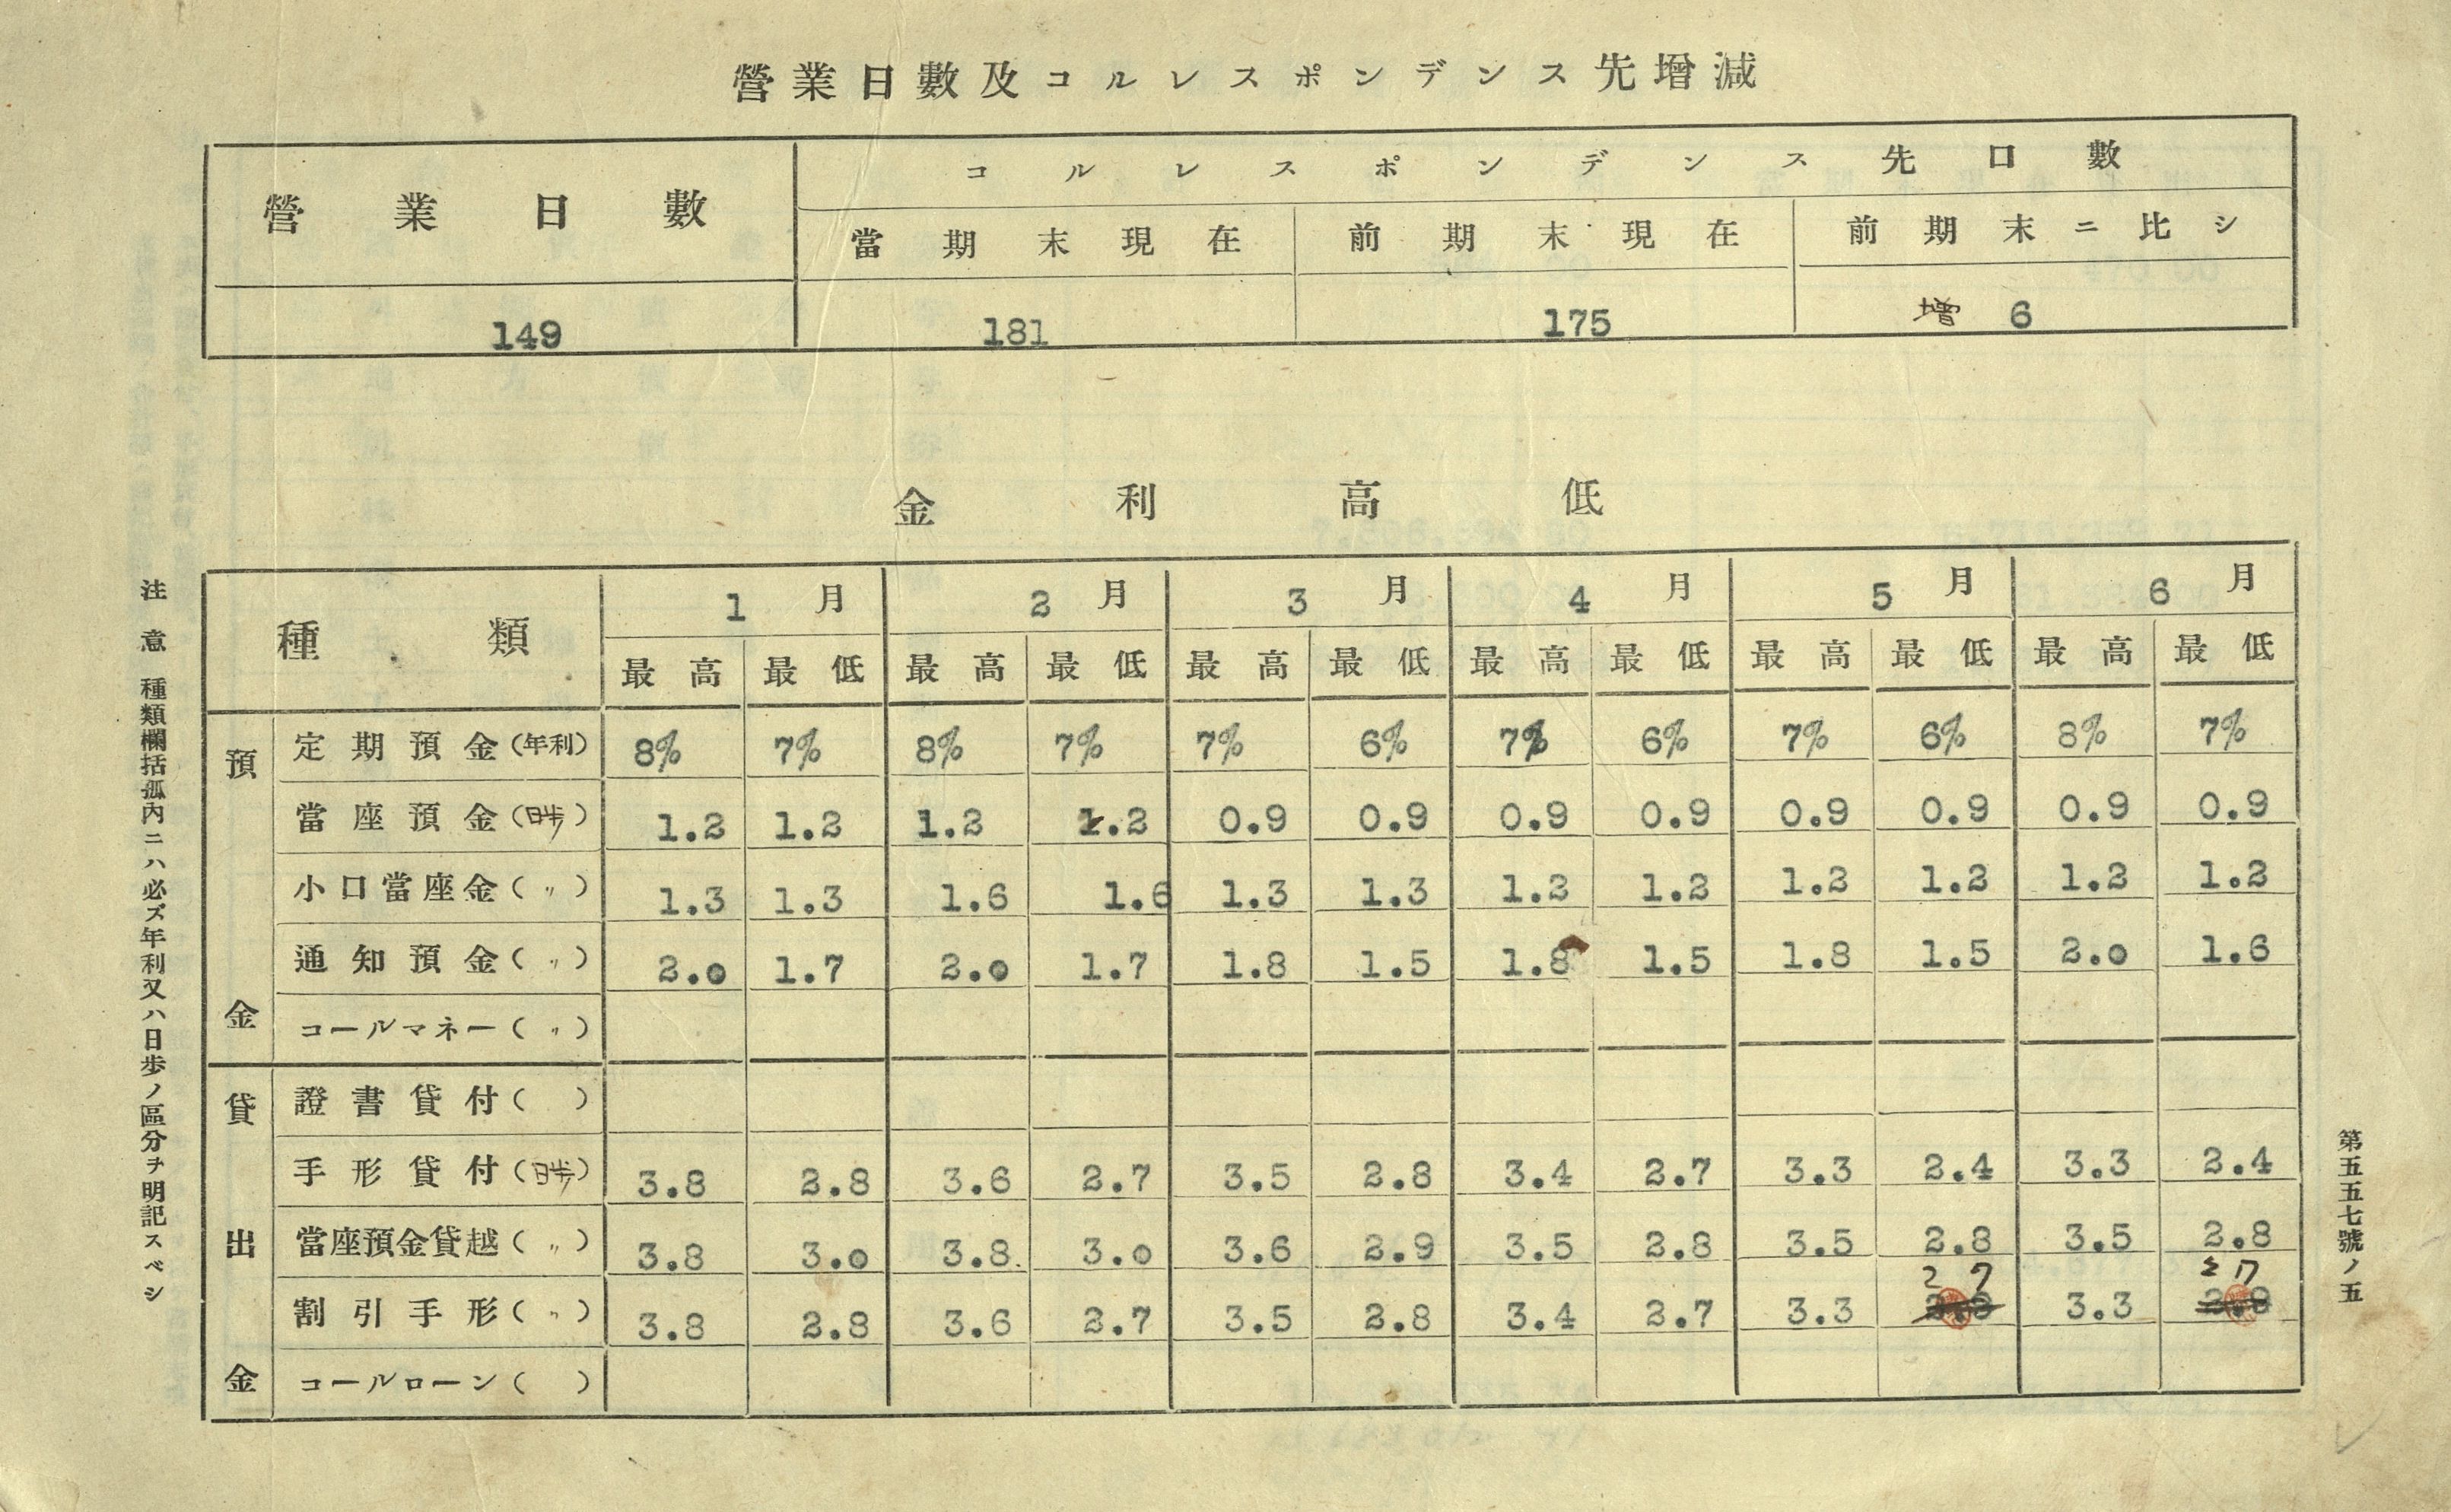 營業日數及コルレスポンデンス先增減
營業日數 コルレスポンデンス先口數
當期末現在 前期末現在 前期末ニ比シ
149 181 175 增 6
金利高低
種類 1月 2月 3月 4月 5月 6月
最高 最低 最高 最低 最高 最低 最高 最低 最高 最低 最高 最低
預金
定期預金(年利) 8% 7% 8% 7% 7% 6% 7% 6% 7% 6% 8% 7%
當座預金(日歩) 1.2 1.2 1.2 1.2 0.9 0.9 0.9 0.9 0.9 0.9 0.9 0.9
小口當座金(〃) 1.3 1.3 1.6 1.6 1.3 1.3 1.2 1.2 1.2 1.2 1.2 1.2
通知預金(〃) 2.0 1.7 2.0 1.7 1.8 1.5 1.8 1.5 1.8 1.5 2.0 1.6
コールマネー(〃)
貸出金
證書貸付( )
手形貸付(日歩) 3.8 2.8 3.6 2.7 3.5 2.8 3.4 2.7 3.3 2.4 3.3 2.4
當座預金貸越(〃) 3.8 3.0 3.8 3.0 3.6 2.9 3.5 2.8 3.5 2.8 3.5 2.8
割引手形(〃) 3.8 2.8 3.6 2.7 3.5 2.8 3.4 2.7 3.3 2 7 3.3 2 7
コールローン( )
注意 種類欄括孤内ニハ必ズ年利又ハ日歩ノ區分ヲ明記スベシ
第五五七號ノ五